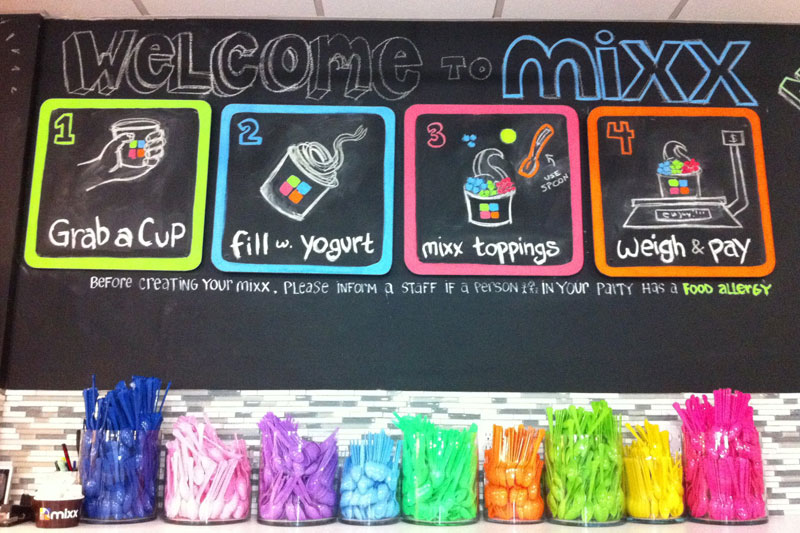 WELCOME TO mixx
1
Grab a Cup
2
fill w. yogurt
3
USE
SPOON
mixx toppings
4
$
weigh & pay
BEFORE CREATING YOUR MIXX, PLEASE INFORM A STAFF IF A PERSON IN YOUR PARTY HAS A FOOD ALLERGY
mixx